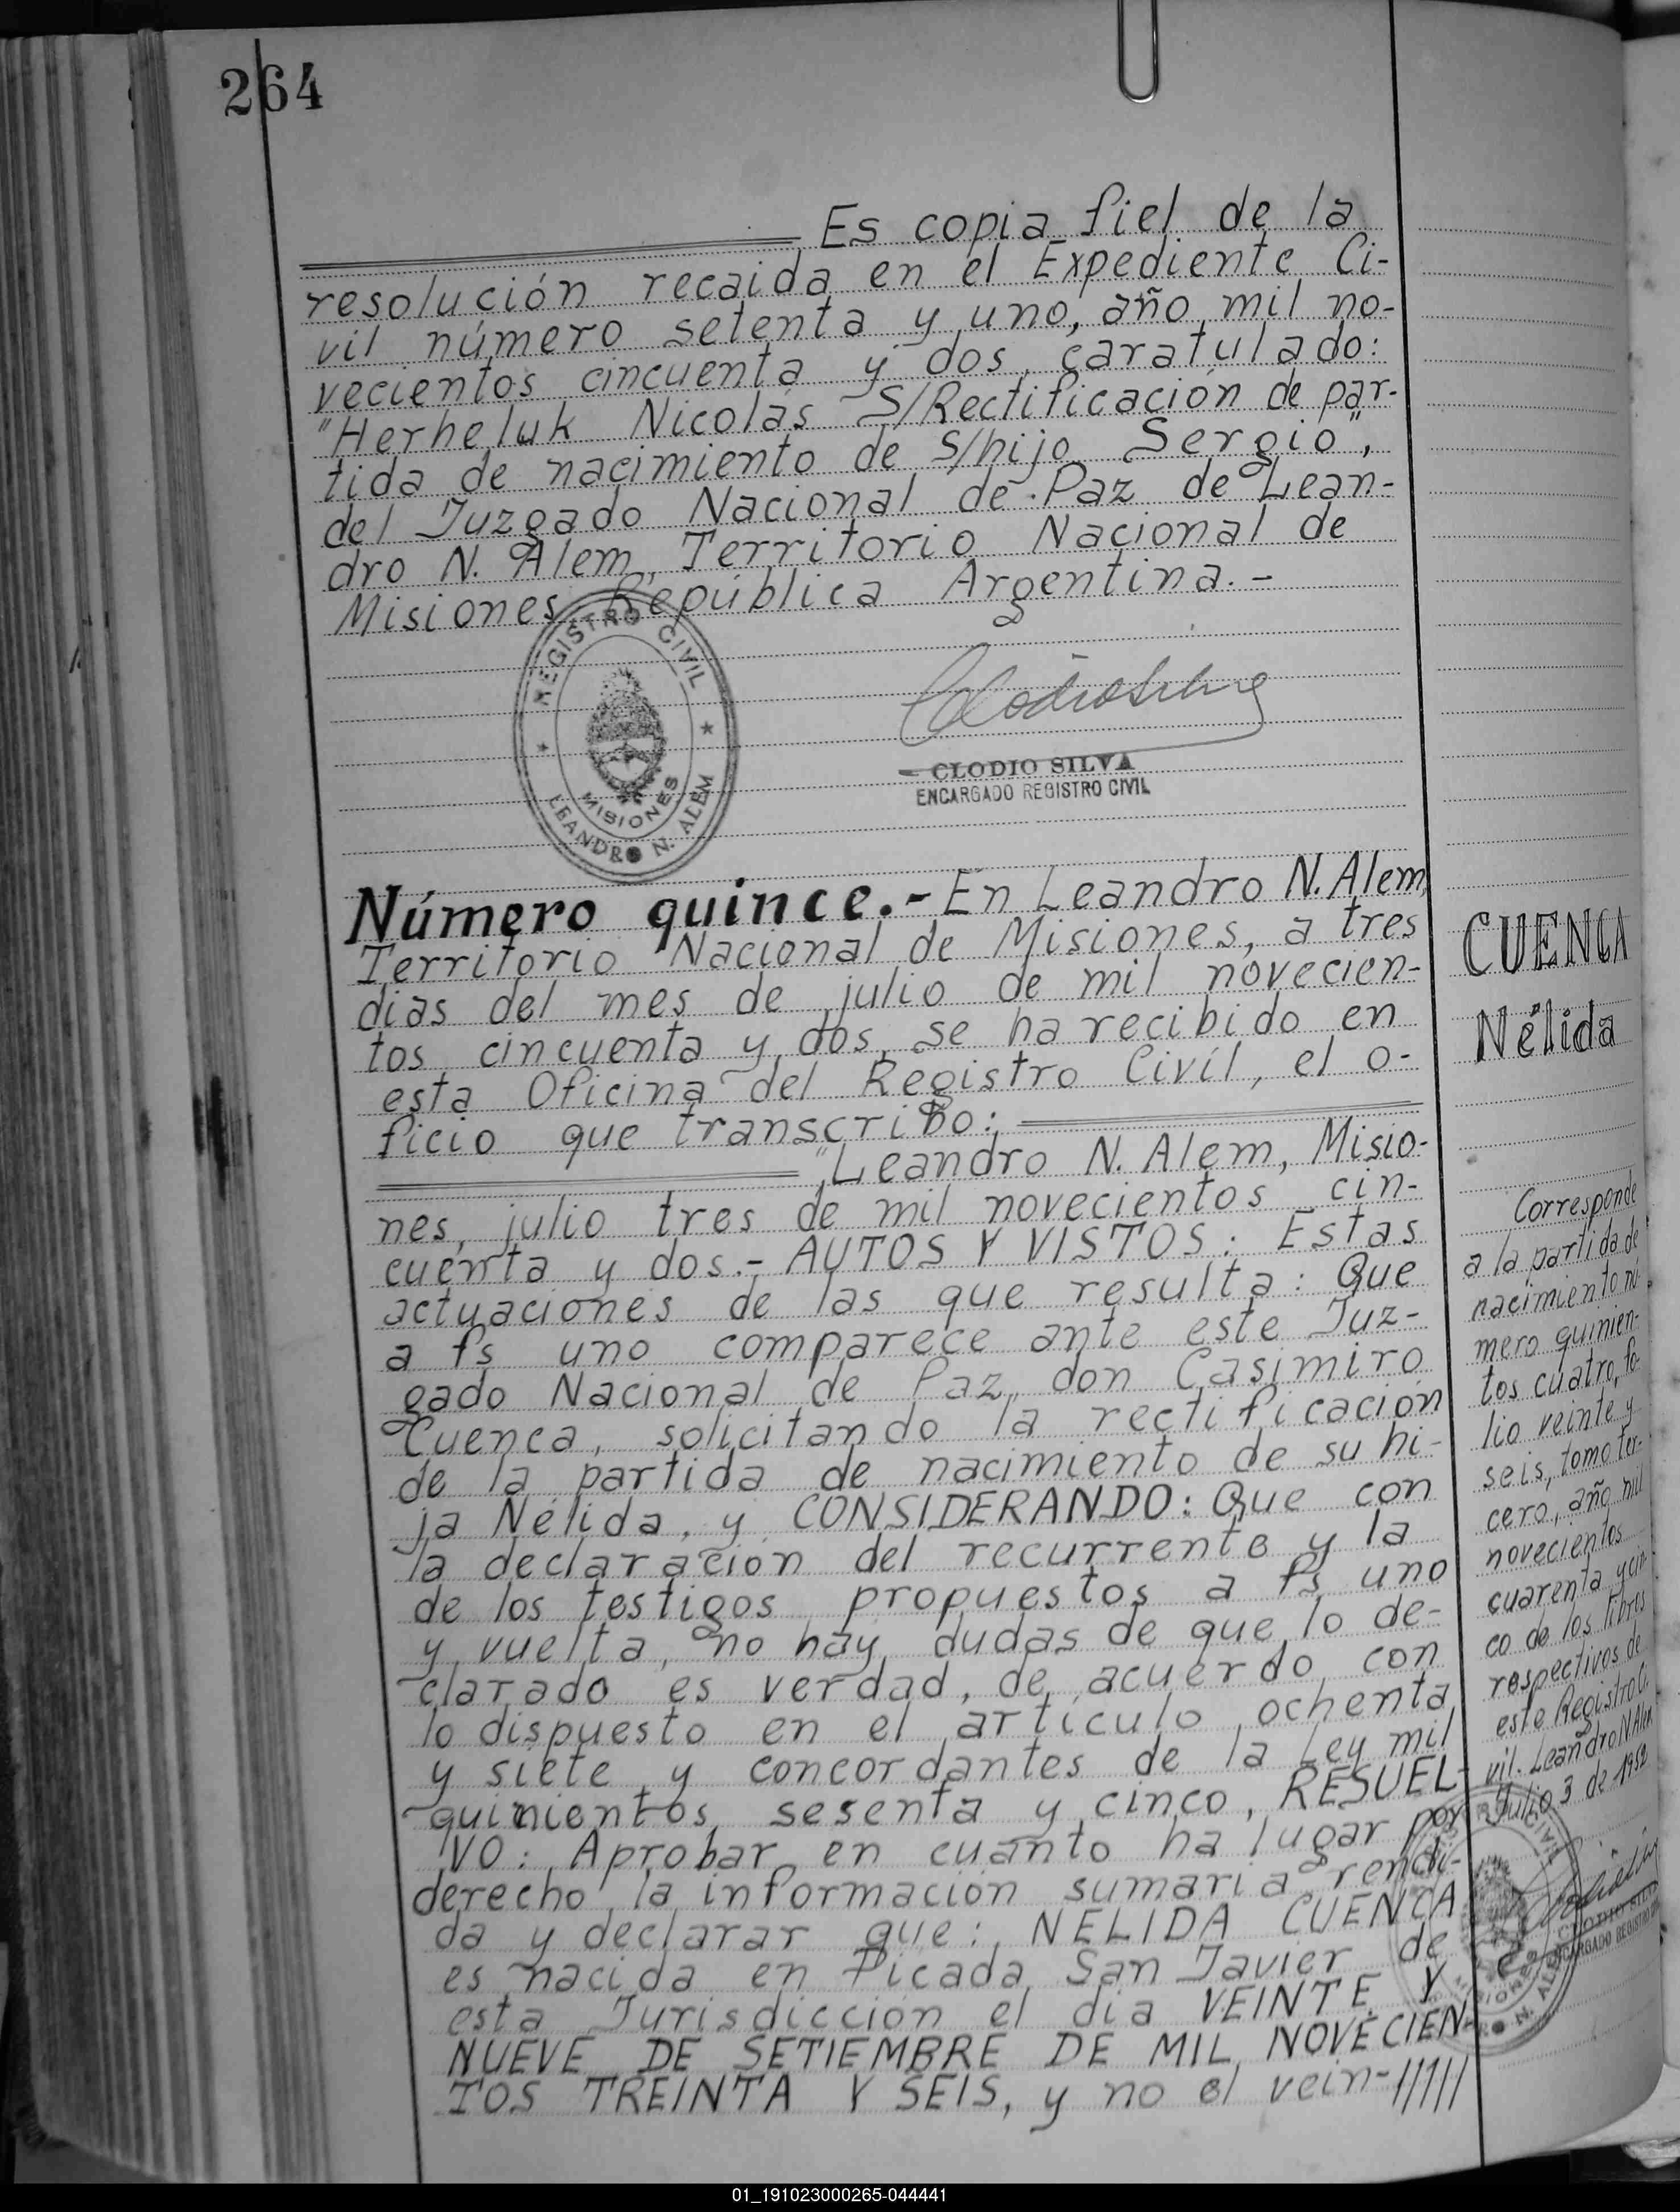 264
Es copia fiel de la
resolución recaida en el Expediente Ci-
vil número setenta y uno, año mil no-
vecientos cincuenta y dos, caratulado:
"Herheluk Nicolás S/Rectificación de par-
tida de nacimiento de s/hijo Sergio",
del Juzgado Nacional de Paz de Lean-
dro N. Alem, Territorio Nacional de
Misiones República Argentina.-
REGISTRO CIVIL
MISIONES
LEANDRO N. ALEM
CLODIO SILVA
ENCARGADO REGISTRO CIVIL
Número quince.- En Leandro N. Alem,
Territorio Nacional de Misiones, a tres
dias del mes de julio de mil novecien-
tos cincuenta y dos, se ha recibido en
esta Oficina del Registro Civíl, el o-
ficio que transcribo:
"Leandro N. Alem, Misio-
nes, julio tres de mil novecientos cin-
cuenta y dos.- AUTOS Y VISTOS: Estas
actuaciones de las que resulta: Que
a fs uno comparece ante este Juz-
gado Nacional de Paz, don Casimiro
Cuenca, solicitando la rectificación
de la partida de nacimiento de su hi-
ja Nélida, y CONSIDERANDO: Que con
la declaración del recurrente y la
de los testigos propuestos a fs uno
y vuelta, no hay dudas de que lo de-
clarado es verdad, de acuerdo con
lo dispuesto en el artículo ochenta
y siete y concordantes de la Ley mil
quinientos sesenta y cinco, RESUEL-
VO: Aprobar en cuanto ha lugar por
derecho la información sumaria rendi-
da y declarar que: NELIDA CUENCA
es nacida en Picada San Javier de
esta Jurisdicción el dia VEINTE Y
NUEVE DE SETIEMBRE DE MIL NOVECIEN
TOS TREINTA Y SEIS, y no el vein-/////
CUENCA
Nélida
Corresponde
a la partida de
nacimiento nú-
mero quinien-
tos cuatro, fo-
lio veinte y
seis, tomo ter-
cero, año mil
novecientos
cuarenta y cin-
co de los libros
respectivos de
este Registro Ci-
vil. Leandro N Alem
Julio 3 de 1952
CLODIO SILVA
ENCARGADO REGISTRO CIVIL
MISIONES
N. ALEM
01_191023000265-044441